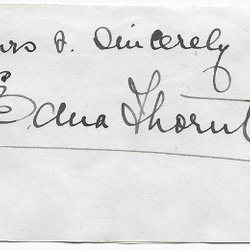 urs v. Sincerely
Edna Thornt